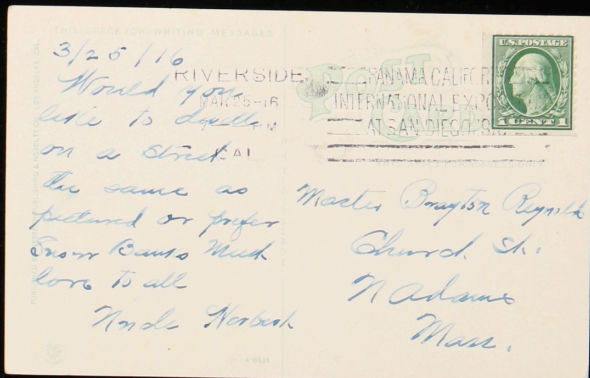 THIS SPACE FOR WRITING MESSAGES
3/25/16
Would you
like to dwell
on a street
the same as
pictured or prefer
Snow Banks Much
love to all
Uncle Herbert
RIVERSIDE
MAR 25-16
PM
CAL
PANAMA CALIFOR
INTERNATIONAL EXPO
AT SAN DIEGO
U.S. POSTAGE
1 CENT 1
POST
Master Brayton Reynolds
Church St.
N Adams
Mass.